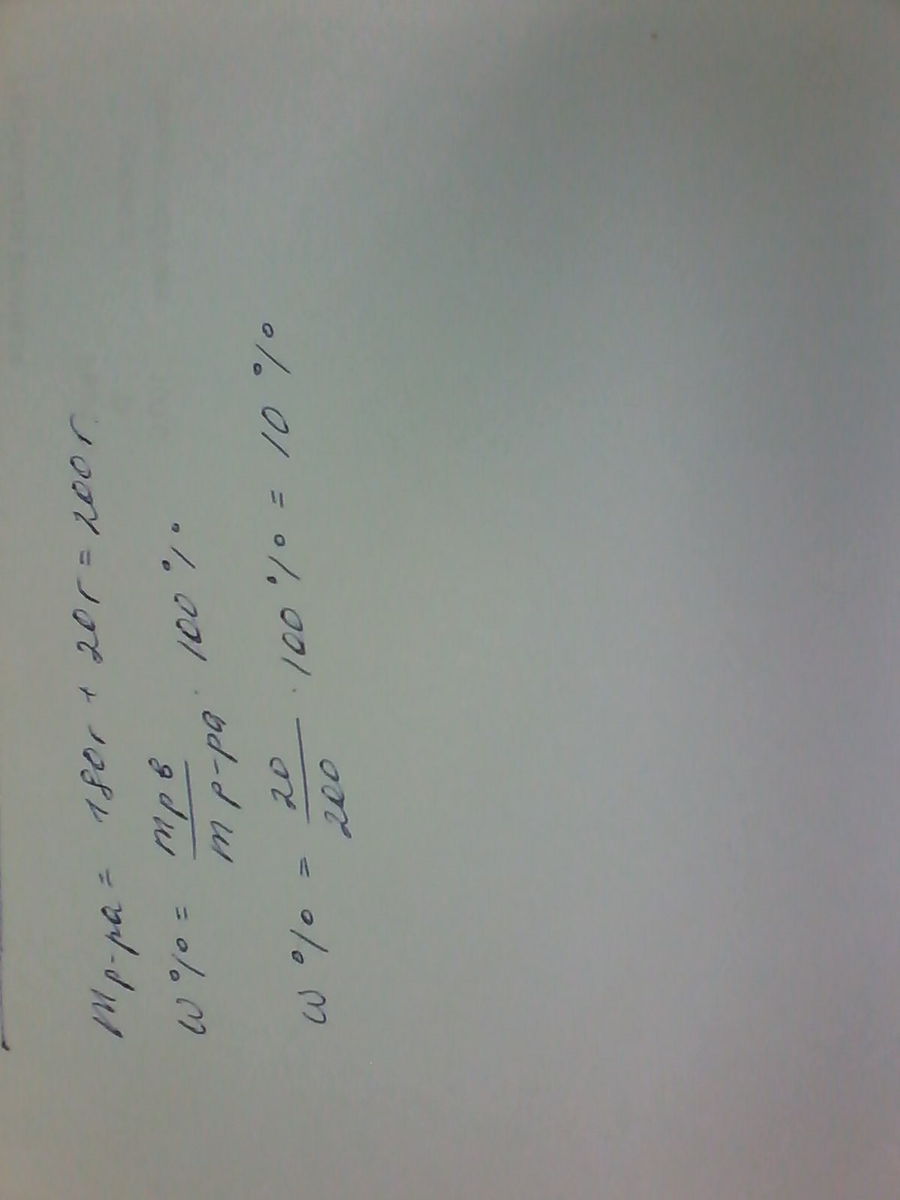 mр-ра = 180г + 20г = 200г.
ω% = mрв / mр-ра · 100%
ω% = 20 / 200 · 100% = 10%